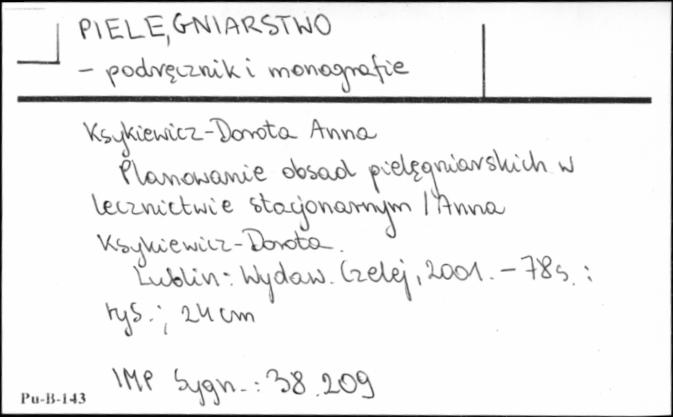 PIELĘGNIARSTWO
- podręczniki monografie
Ksykiewicz-Dorota Anna
Planowanie obsad pielęgniarskich w
lecznictwie stacjonarnym / Anna
Ksykiewicz-Dorota.
Lublin: Wydaw. Czelej, 2001. - 78 s. :
rys. ; 24 cm
IMP Sygn. : 38.209
Pu-B-143